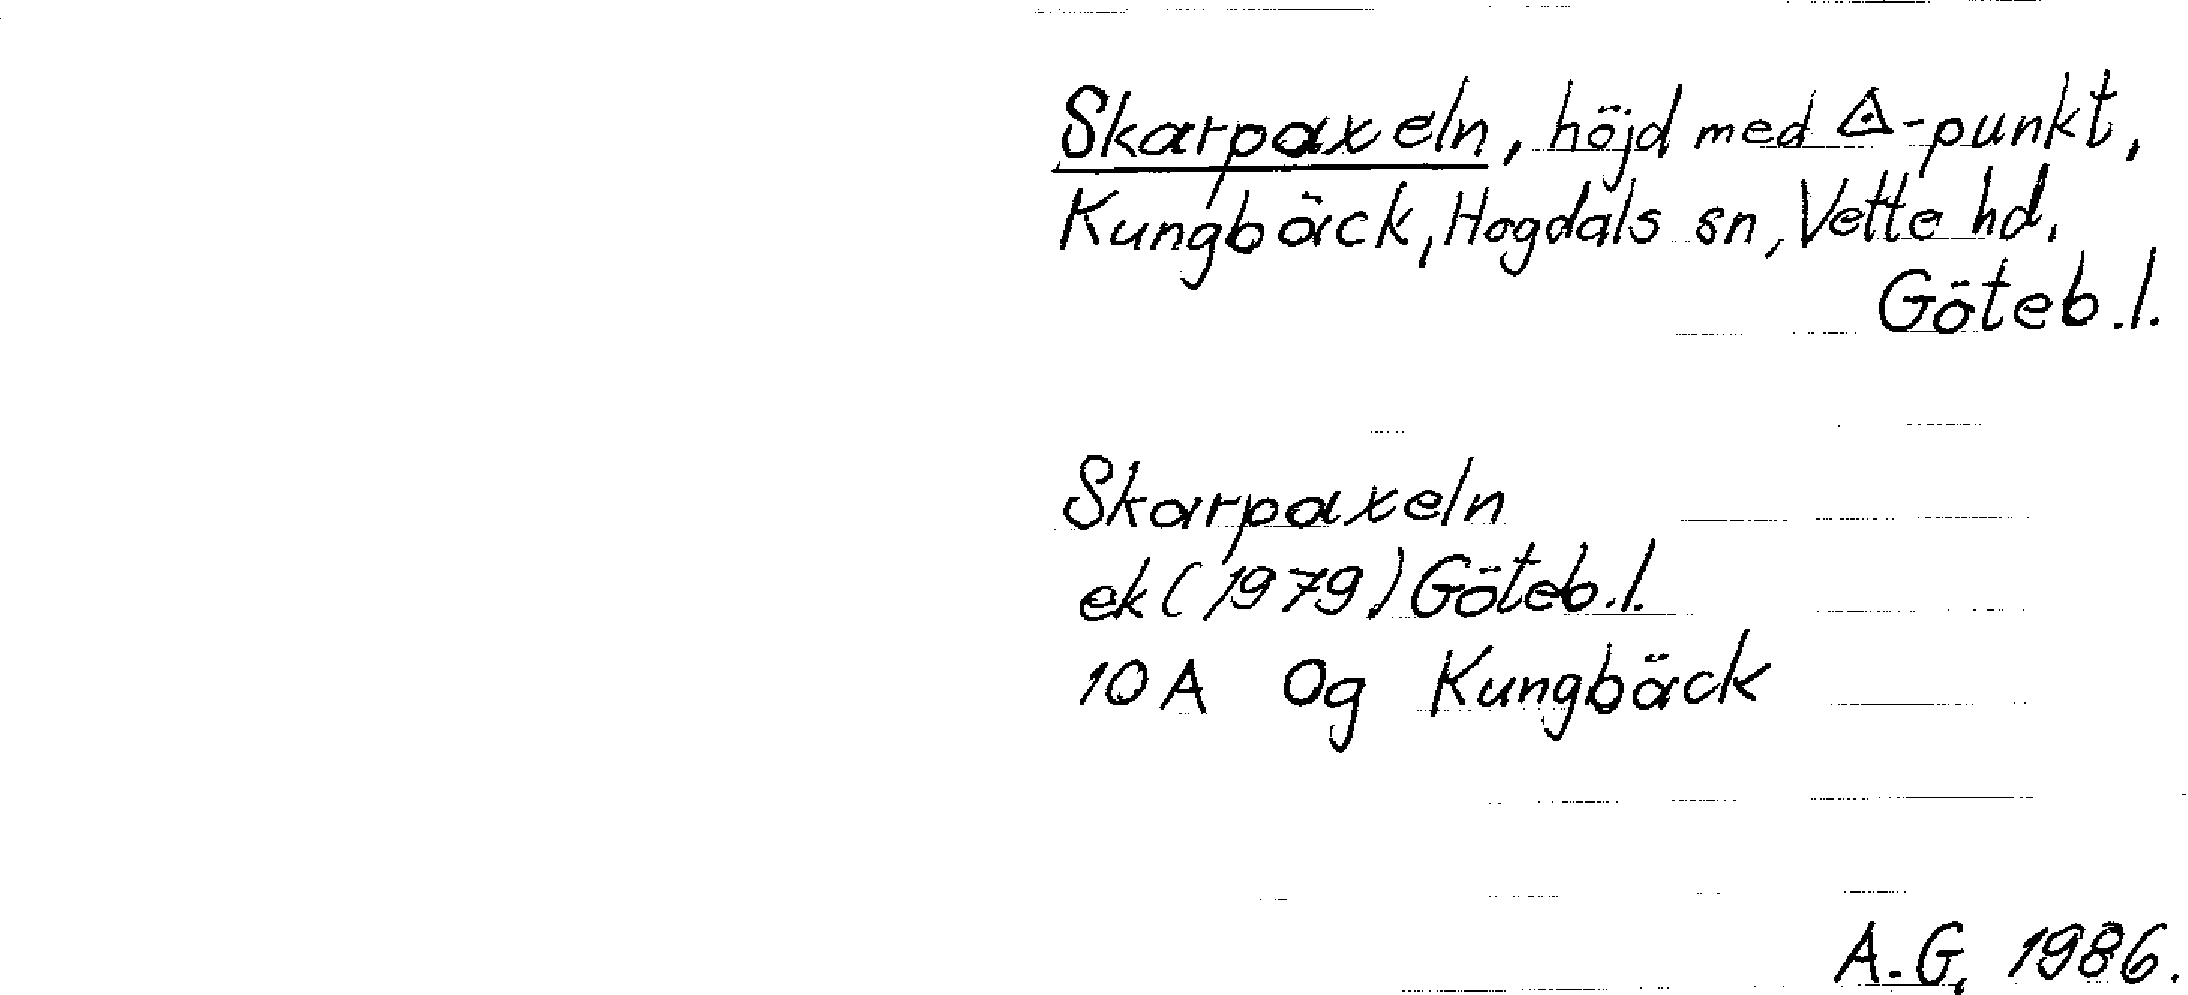 Skarpaxeln, höjd med △-punkt,
Kungbäck, Hogdals sn, Vette hd.
Göteb.l.
Skarpaxeln
ek (1979) Göteb.l.
10A 0g Kungbäck
A.G, 1986.